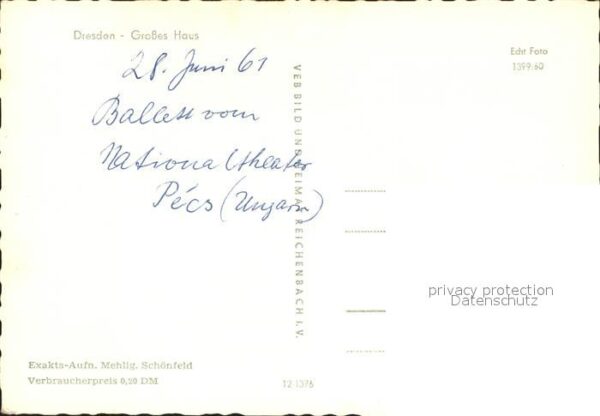 Dresden - Großes Haus
Echt Foto
1399.60
28. Juni 61
Ballett vom
Nationaltheater
Pécs (Ungarn)
VEB BILD UND HEIMAT REICHENBACH i. V.
privacy protection
Datenschutz
Exakta-Aufn. Mehlig, Schönfeld
Verbraucherpreis 0,20 DM
12-1376